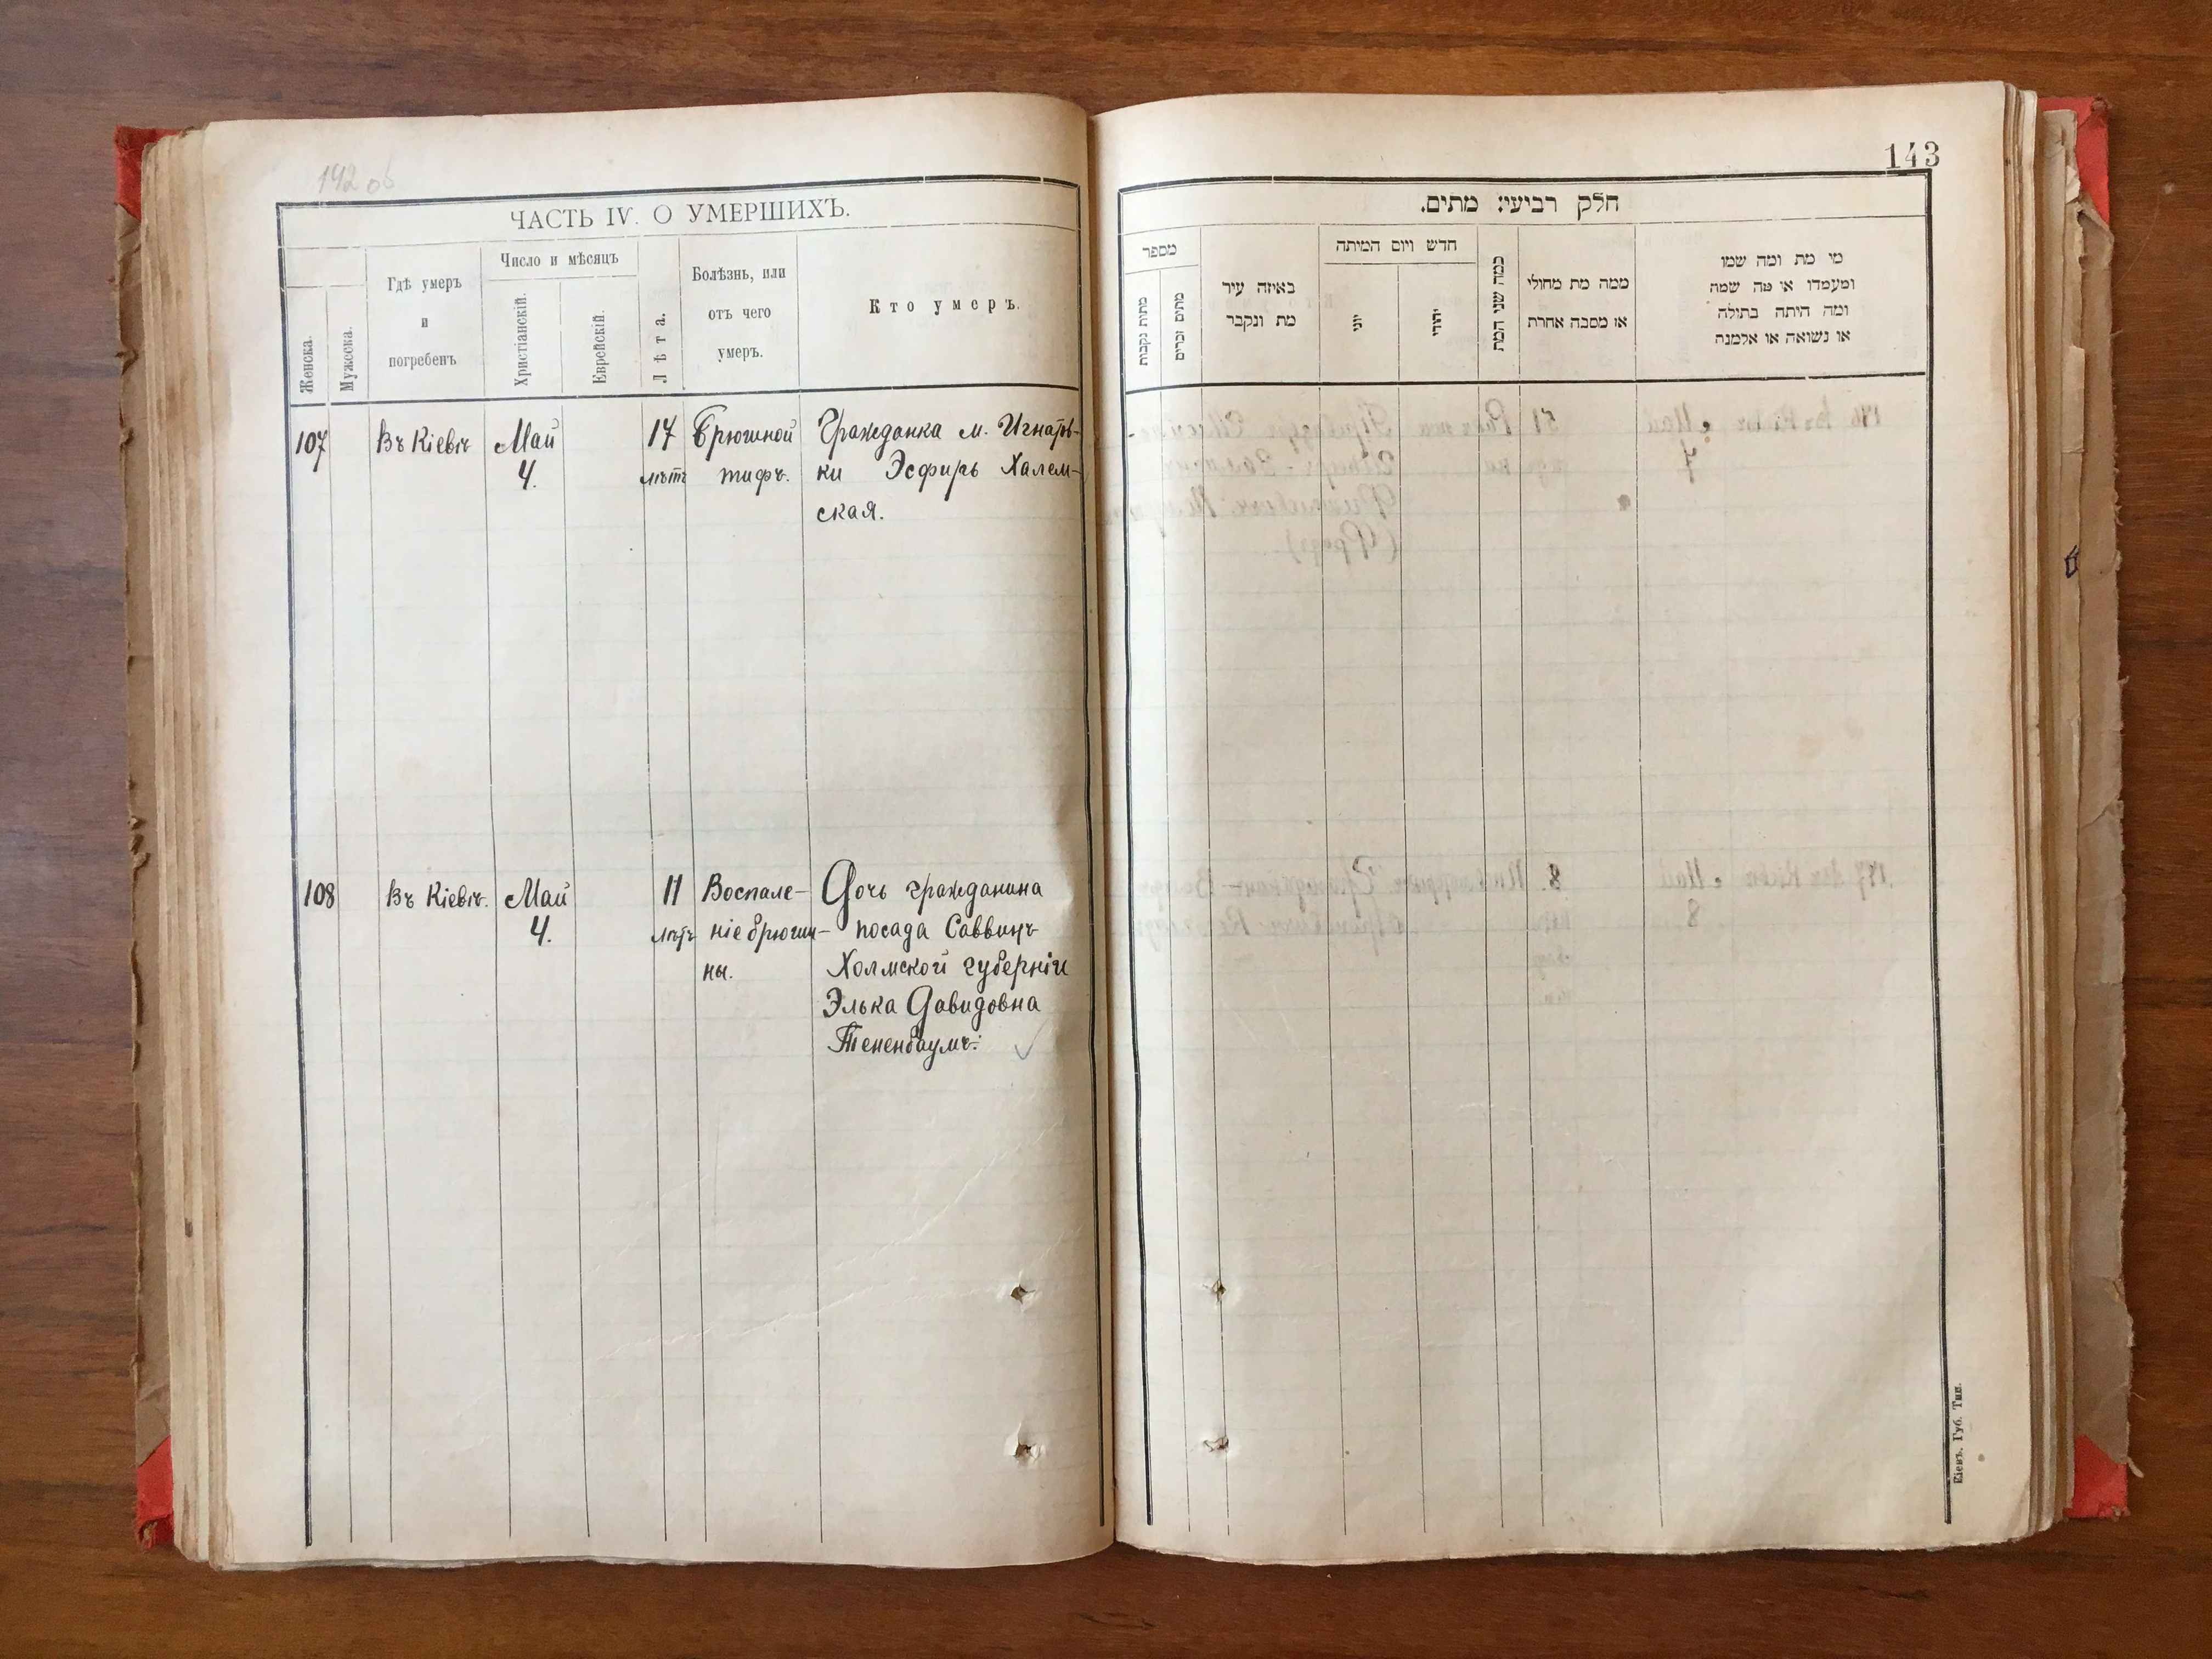 142 об
ЧАСТЬ IV. О УМЕРШИХЪ.
Женска.
Мужеска.
Гдѣ умеръ
и
погребенъ
Число и мѣсяцъ
Христіанскій.
Еврейскій.
Лѣта.
Болѣзнь, или
отъ чего
умеръ.
Кто умеръ.
107 Въ Кіевѣ Май 17 Брюшной Гражданка м. Игнатов-
4. лѣтъ тифъ. ки Эсфирь Халем-
ская.
108 Въ Кіевѣ. Май 11 Воспале- Дочь гражданина
4. лѣтъ ніе брюши- посада Саввинъ
ны. Холмской губерніи
Элька Давидовна
Тененбаумъ.
143
חלק רביעי: מתים.
מספר
מתות נקבות
מתים זכרים
באיזה עיר
מת ונקבר
חדש ויום המיתה
יוני
יהודי
כמה שני המת
ממה מת מחולי
או מסבה אחרת
מי מת ומה שמו
ומעמדו או מה שמה
ומה היתה בתולה
או נשואה או אלמנה
Кіевъ. Губ. Тип.